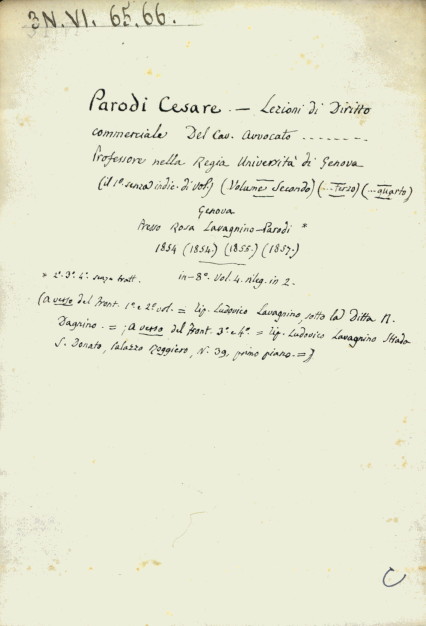 3N.VI. 65.66.
Parodi Cesare. — Lezioni di Diritto
commerciale Del Cav. Avvocato .......
Professore nella Regia Università di Genova
(il 1º. senza indic. di vol.) (Volume Secondo) (...Terzo) (...quarto)
Genova
Presso Rosa Lavagnino-Parodi *
1854 (1854.) (1855.) (1857.)
* 2º. 3º. 4º. senza tratt. in-8º. Vol. 4. rileg. in 2.
(a verso del Front. 1º. e 2º. vol. = Tip. Ludovico Lavagnino, sotto la Ditta M.
Dagnino. = ; a verso del Front. 3º. e 4º. = Tip. Ludovico Lavagnino Strada
S. Donato, Palazzo Roggiero, N. 39, primo piano. =)
C